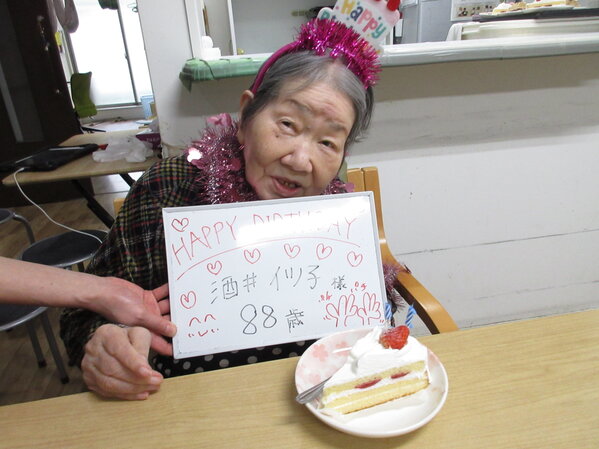 Happy
HAPPY BIRTHDAY
酒井 イツ子 様
88歳